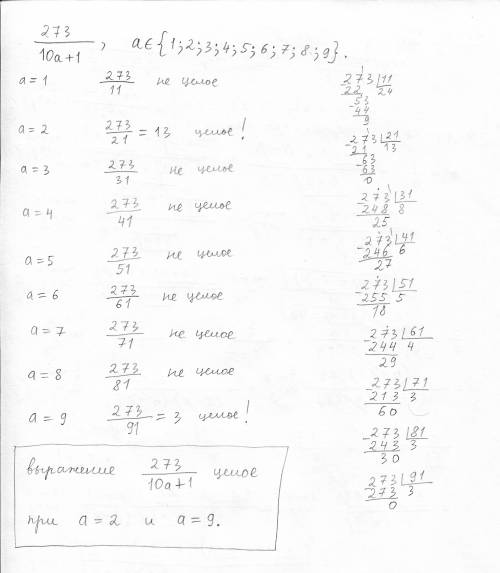 273/(10a+1), a∈{1;2;3;4;5;6;7;8;9}.
a=1 273/11 не целое
a=2 273/21 = 13 целое!
a=3 273/31 не целое
a=4 273/41 не целое
a=5 273/51 не целое
a=6 273/61 не целое
a=7 273/71 не целое
a=8 273/81 не целое
a=9 273/91 = 3 целое!
выражение 273/(10a+1) целое
при a=2 и a=9.
-273|11
22 24
-53
44
9
-273|21
21 13
-63
63
0
-273|31
248 8
25
-273|41
246 6
27
-273|51
255 5
18
-273|61
244 4
29
-273|71
213 3
60
-273|81
243 3
30
-273|91
273 3
0